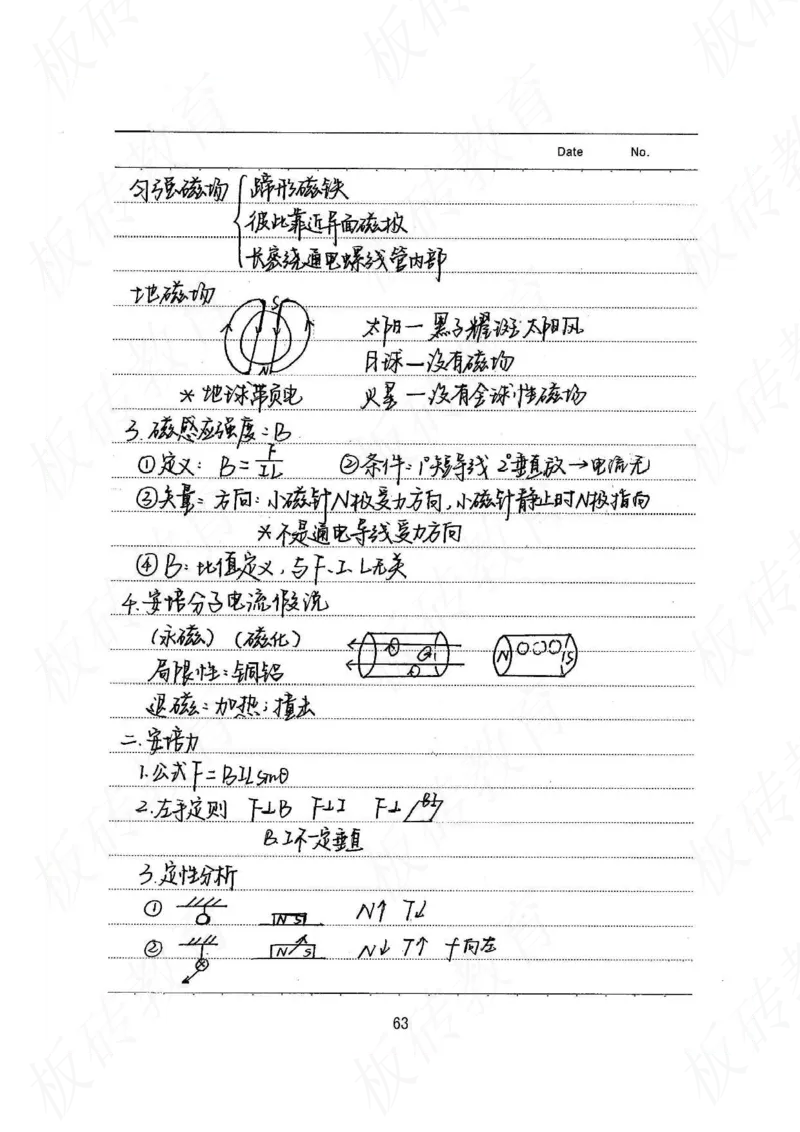 Date No.
匀强磁场 { 蹄形磁铁
彼此靠近异面磁极
长密绕通电螺线管内部
地磁场
S
N
太阳—黑子耀斑太阳风
月球—没有磁场
* 地球带负电 火星—没有全球性磁场
3. 磁感应强度：B
①定义：B=F/IL ②条件：1°短导线 2°垂直放→电流元
③矢量：方向：小磁针N极受力方向，小磁针静止时N极指向
*不是通电导线受力方向
④B：比值定义，与F、I、L无关
4. 安培分子电流假说
(永磁) (磁化)
N S
局限性：铜铝
退磁：加热；撞击
二.安培力
1.公式F=BILsinθ
2.左手定则 F⊥B F⊥I F⊥ BI
B、I不一定垂直
3.定性分析
① N S N↑ T↓
② N S N↓ T↑ f向左
63
板砖教育